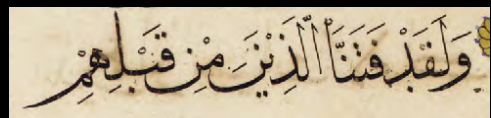 وَلَقَدْ فَتَنَّا الَّذِيْنَ مِنْ قَبْلِهِمْ